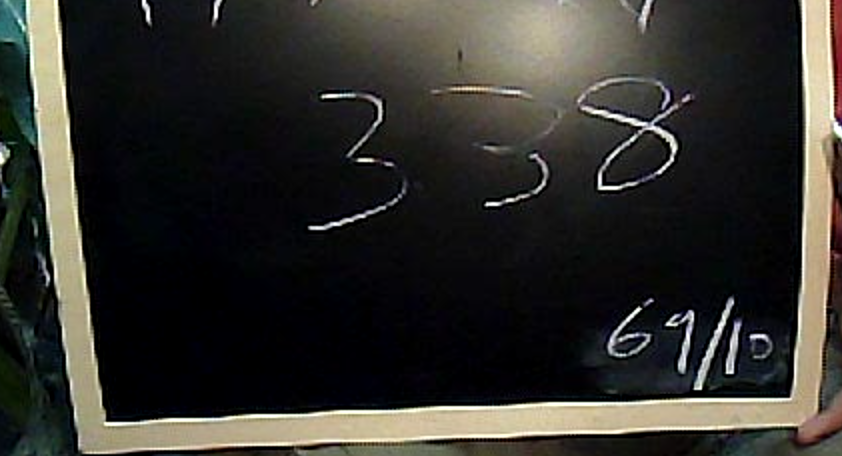 338
69/10